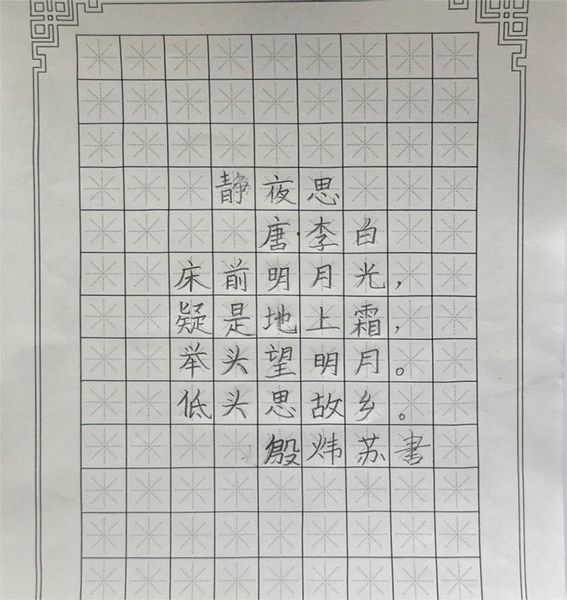 静夜思
唐·李白
床前明月光,
疑是地上霜,
举头望明月。
低头思故乡。
殷炜苏书